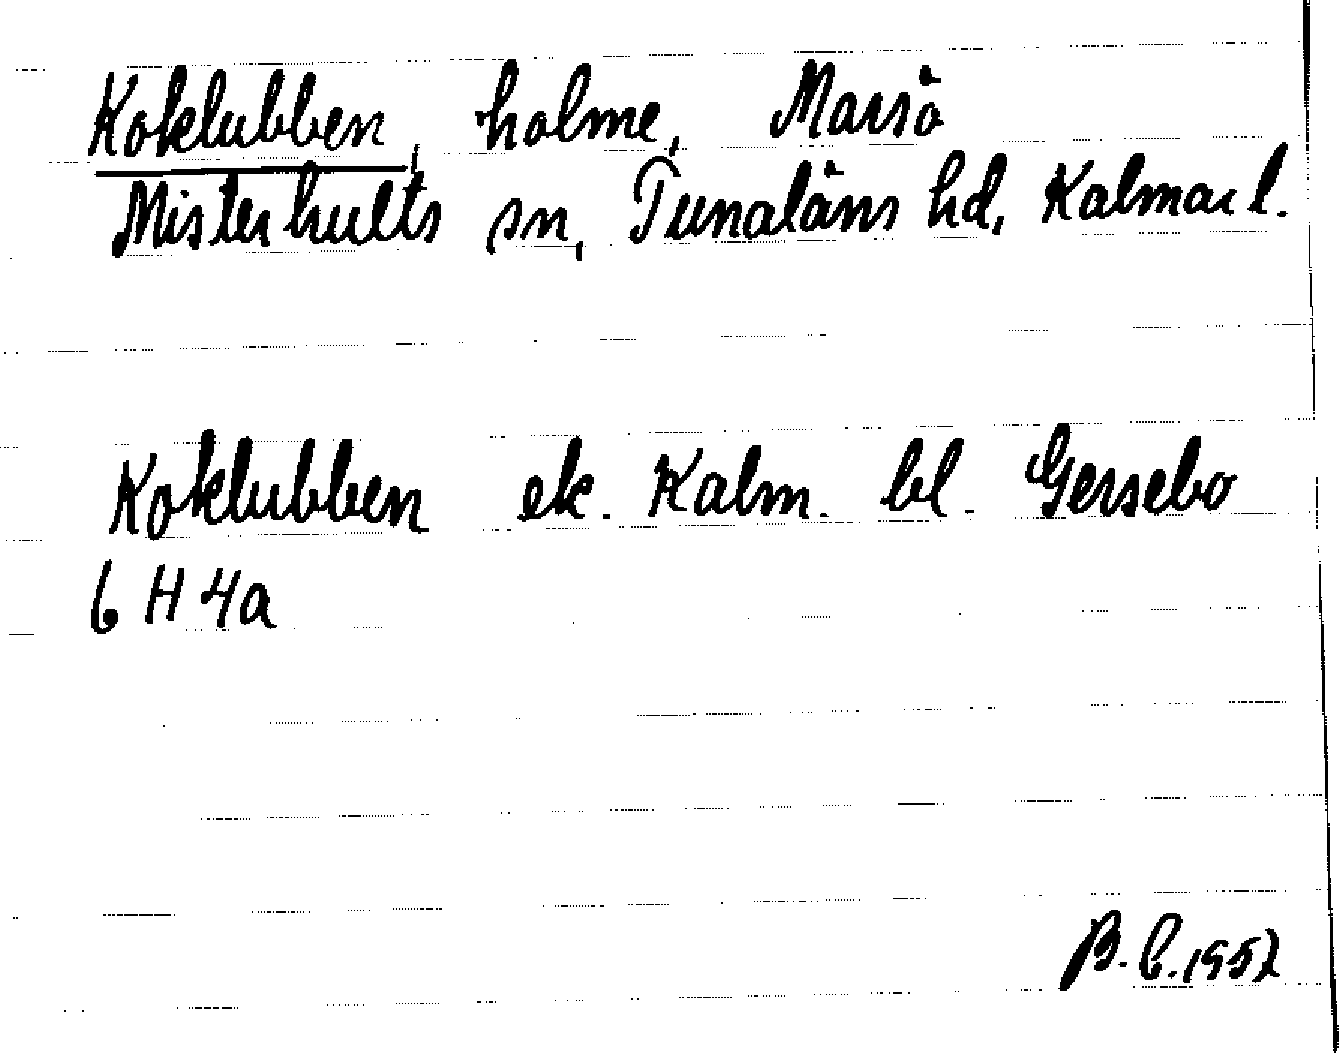 Koklubben, holme, Marsö
Misterhults sn, Tunaläns hd, Kalmar l.
Koklubben ek. Kalm. bl. Gersebo
6 H 4a
B. C. 1952